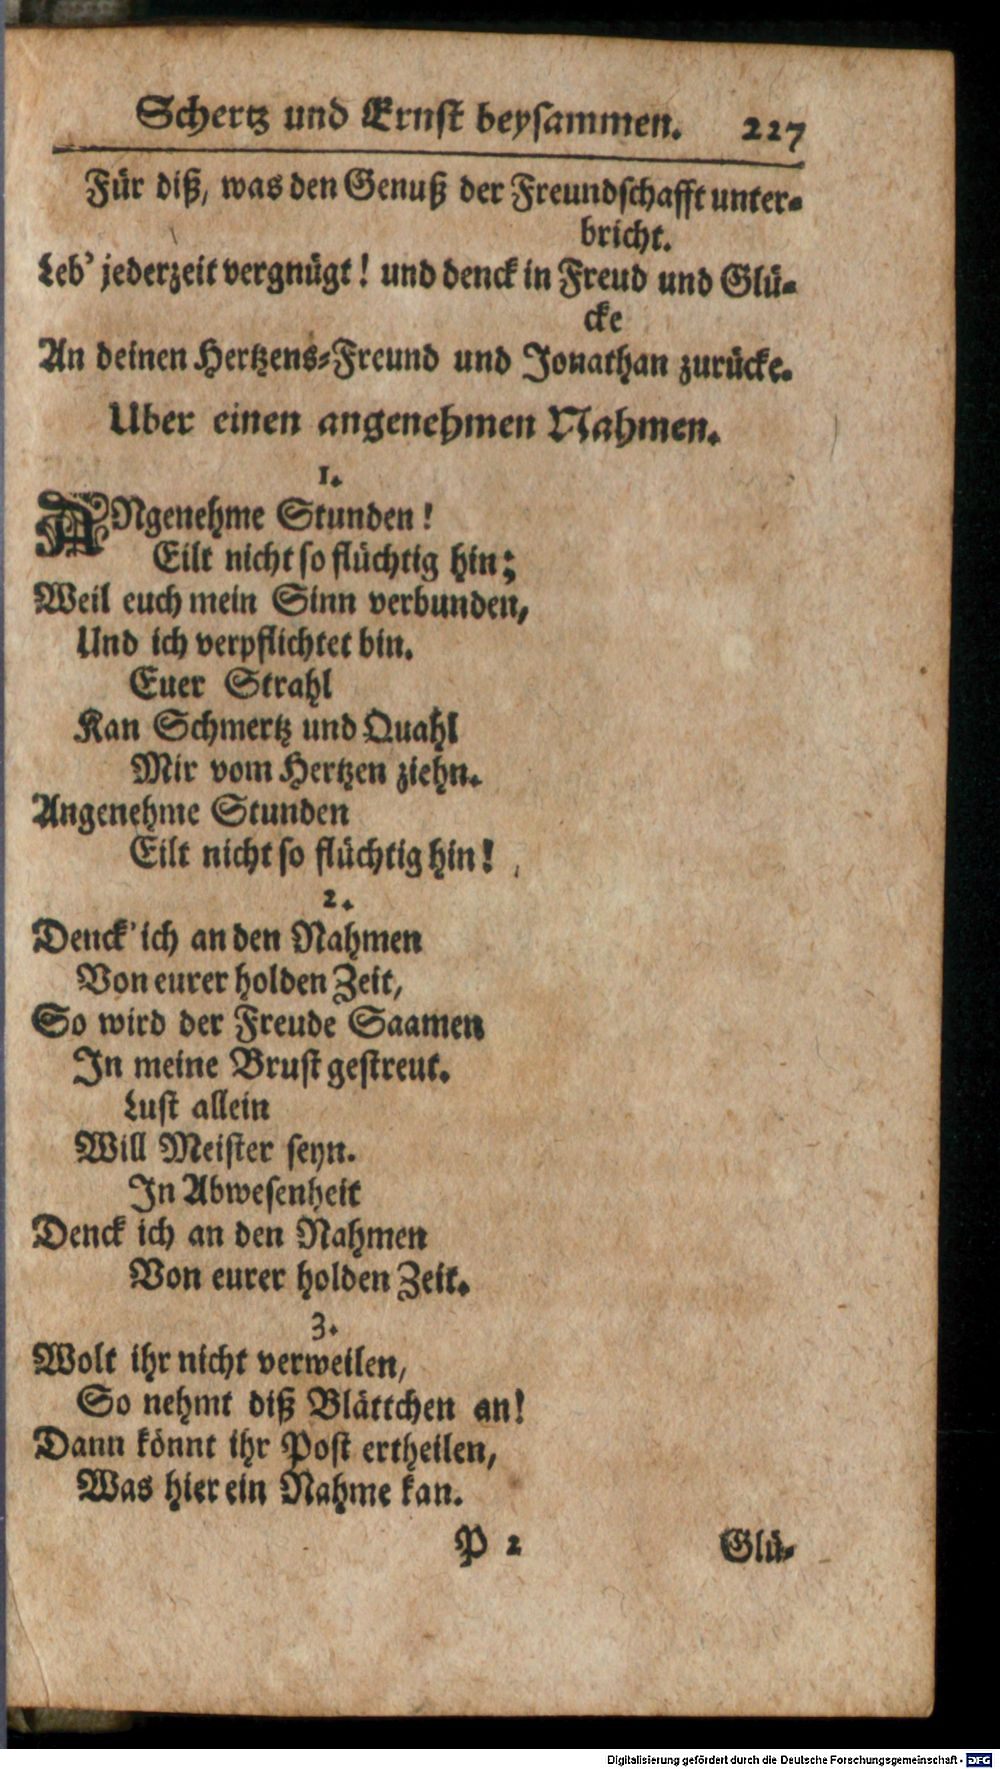 Schertz und Ernst beysammen. 227
Für diß, was den Genuß der Freundschafft unter-
bricht.
Leb' jederzeit vergnügt! und denck in Freud und Glü-
cke
An deinen Hertzens-Freund und Jonathan zurücke.
Uber einen angenehmen Nahmen.
1.
ANgenehme Stunden!
Eilt nicht so flüchtig hin;
Weil euch mein Sinn verbunden,
Und ich verpflichtet bin.
Euer Strahl
Kan Schmertz und Quahl
Mir vom Hertzen ziehn.
Angenehme Stunden
Eilt nicht so flüchtig hin!
2.
Denck' ich an den Nahmen
Von eurer holden Zeit,
So wird der Freude Saamen
In meine Brust gestreut.
Lust allein
Will Meister seyn.
In Abwesenheit
Denck ich an den Nahmen
Von eurer holden Zeit.
3.
Wolt ihr nicht verweilen,
So nehmt diß Blättchen an!
Dann könnt ihr Post ertheilen,
Was hier ein Nahme kan.
P 2 Glü-
Digitalisierung gefördert durch die Deutsche Forschungsgemeinschaft - DFG